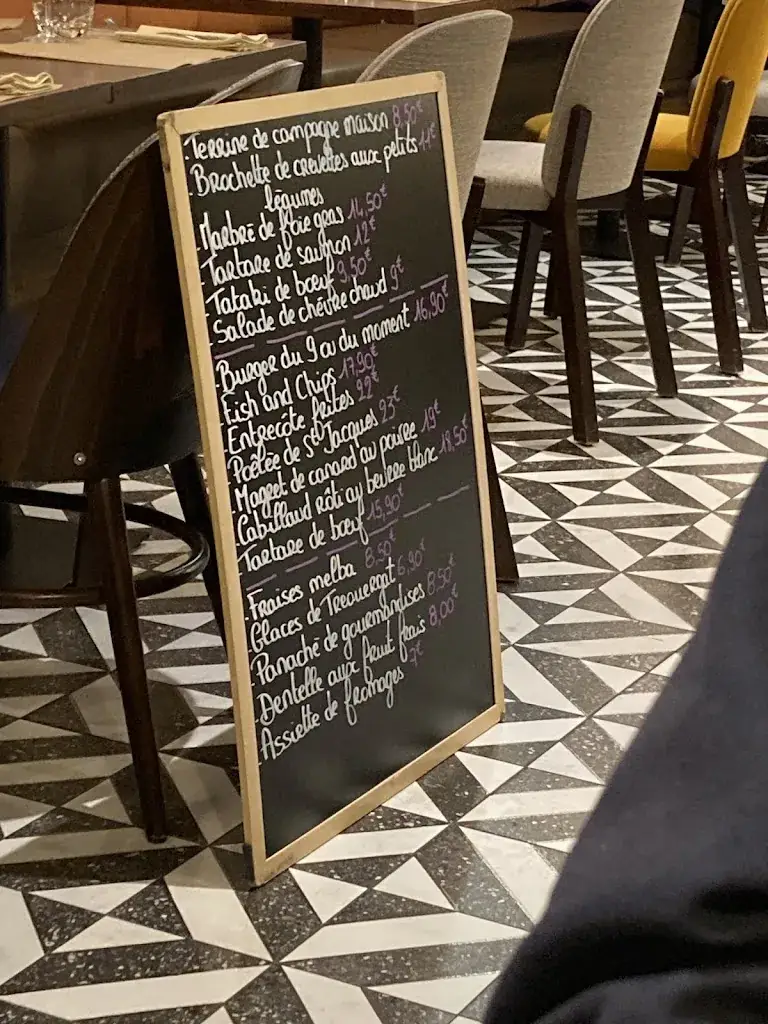 - Terrine de campagne maison 8,50€
- Brochette de crevettes aux petits 11€
légumes
- Marbré de foie gras 14,50€
- Tartare de saumon 12€
- Tataki de bœuf 9,50€
- Salade de chèvre chaud 9€
- Burger du 9 ou du moment 16,90€
- Fish and Chips 17,90€
- Entrecôte frites 22€
- Poêlée de St Jacques 23€
- Magret de canard au poivre 19€
- Cabillaud rôti au beurre blanc 18,50€
- Tartare de bœuf 15,90€
- Fraises melba 8,50€
- Glaces de Treouergat 6,90€
- Panaché de gourmandises 8,50€
- Dentelle aux fruit frais 8,00€
- Assiette de fromages 7€